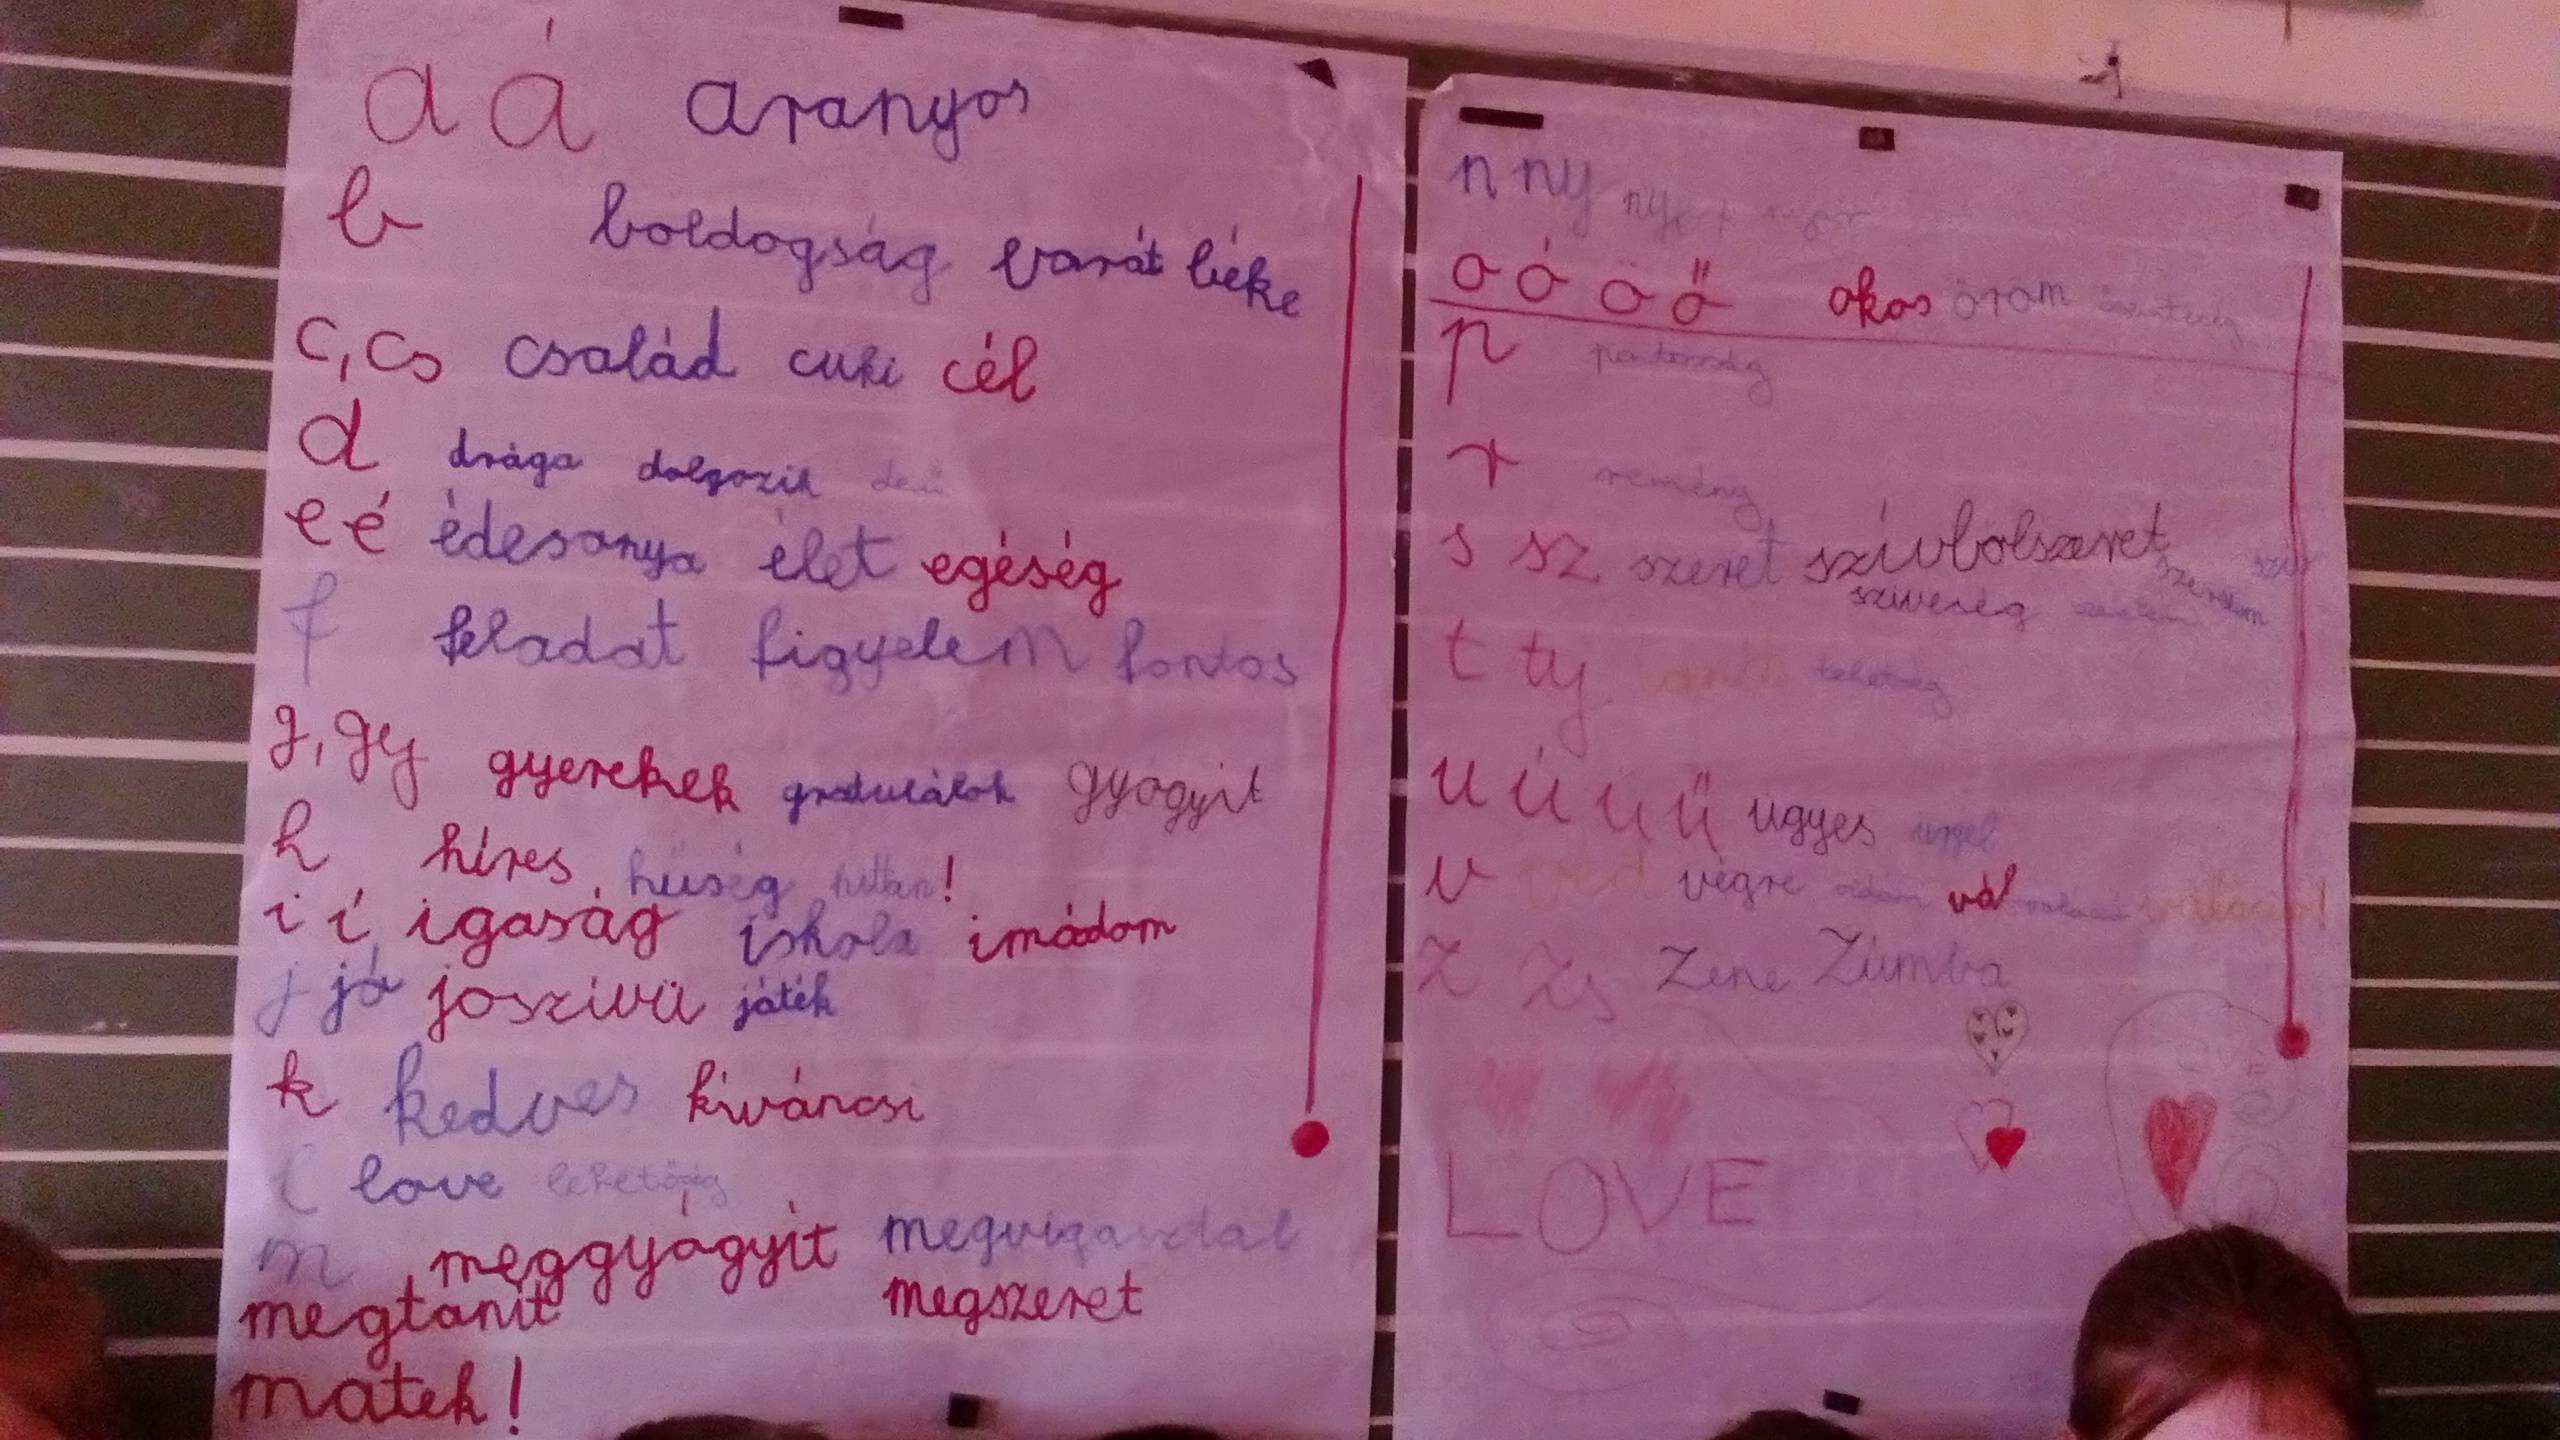 a á aranyos
b boldogság barát béke
c, cs család cuki cél
d drága dolgozik
e é édesanya élet egéség
f feladat figyelem fontos
g, gy gyerekek gratulálok gyógyít
h híres, hűség hittan!
i í igaság iskola imádom
j jó joszívü játék
k kedves kíváncsi
l love lehetőség
m meggyógyít megvigasztal
megtanít megszeret
matek!
n ny
o ó ö ő okos öröm
p
r remény
s sz szeret szívbölszeret
sziveség szerelem
t ty tehetség
u ú ü ű ügyes
v véd végre
z zs Zene Zumba
LOVE